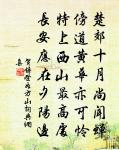 楚郊十月尚聞蟬
傍道黃華亦可憐
特上西山最高處
長安應在夕陽邊
賀鑄登